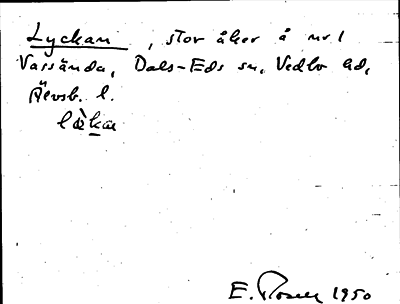 Lyckan, stor åker å nr 1
Vassända, Dals-Eds sn, Vedbo hd,
Älvsb. l.
E. Rosen 1950